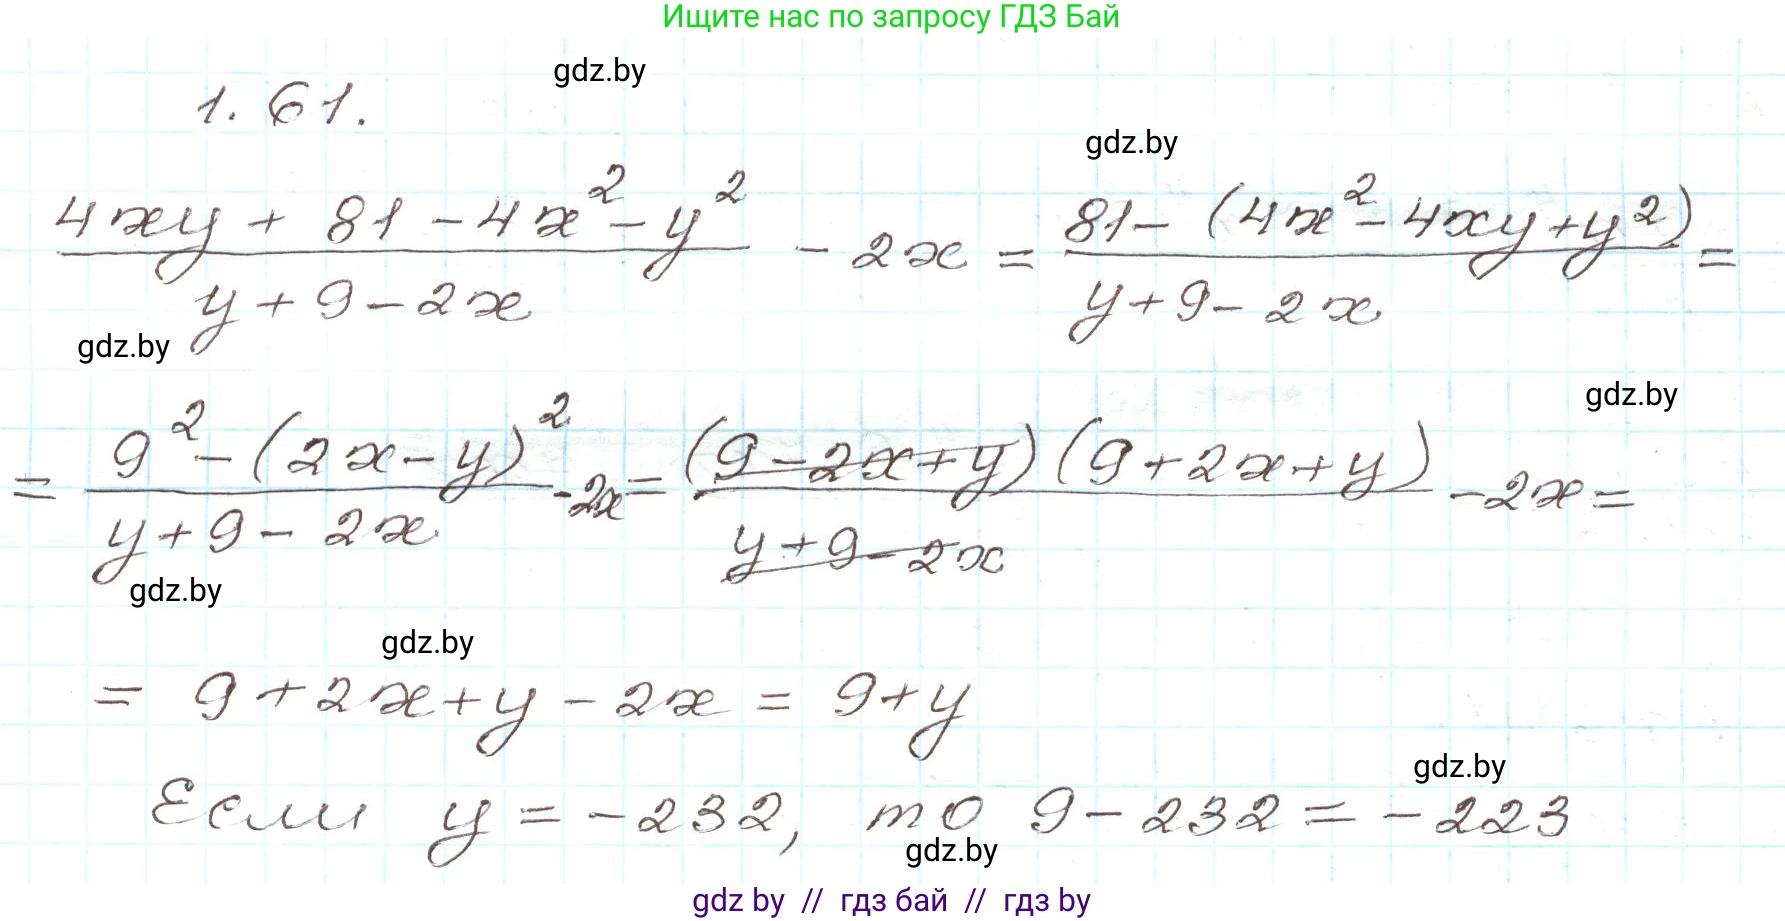 Ищите нас по запросу ГДЗ Бай
gdz.by
1.61.
gdz.by
(4xy + 81 - 4x² - y²)/(y + 9 - 2x) - 2x = (81 - (4x² - 4xy + y²))/(y + 9 - 2x) =
gdz.by
gdz.by
= (9² - (2x - y)²)/(y + 9 - 2x) - 2x = ((9 - 2x + y)(9 + 2x + y))/(y + 9 - 2x) - 2x =
gdz.by
gdz.by
= 9 + 2x + y - 2x = 9 + y
gdz.by
Если y = -232, то 9 - 232 = -223
gdz.by
gdz by // гдз бай // гдз by